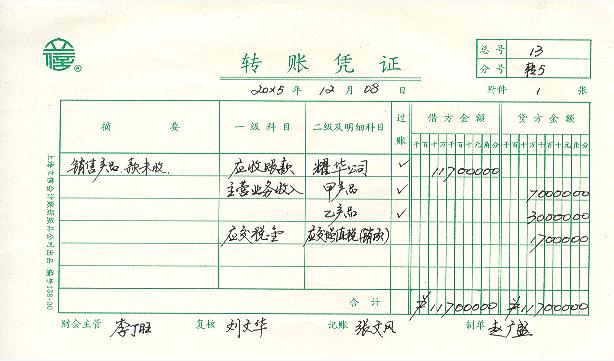 转账凭证
总号 13
分号 转5
20×5 年 12 月 08 日
附件 1 张
摘要 一级科目 二级及明细科目 过账 借方金额 贷方金额
千百十万千百十元角分 千百十万千百十元角分
销售产品,款未收. 应收账款 耀华公司 ✓ 11700000
主营业务收入 甲产品 ✓ 7000000
乙产品 ✓ 3000000
应交税金 应交增值税(销项) 1700000
合计 ¥11700000 ¥11700000
财会主管 李丁旺 复核 刘文华 记账 张文凤 制单 赵广盛